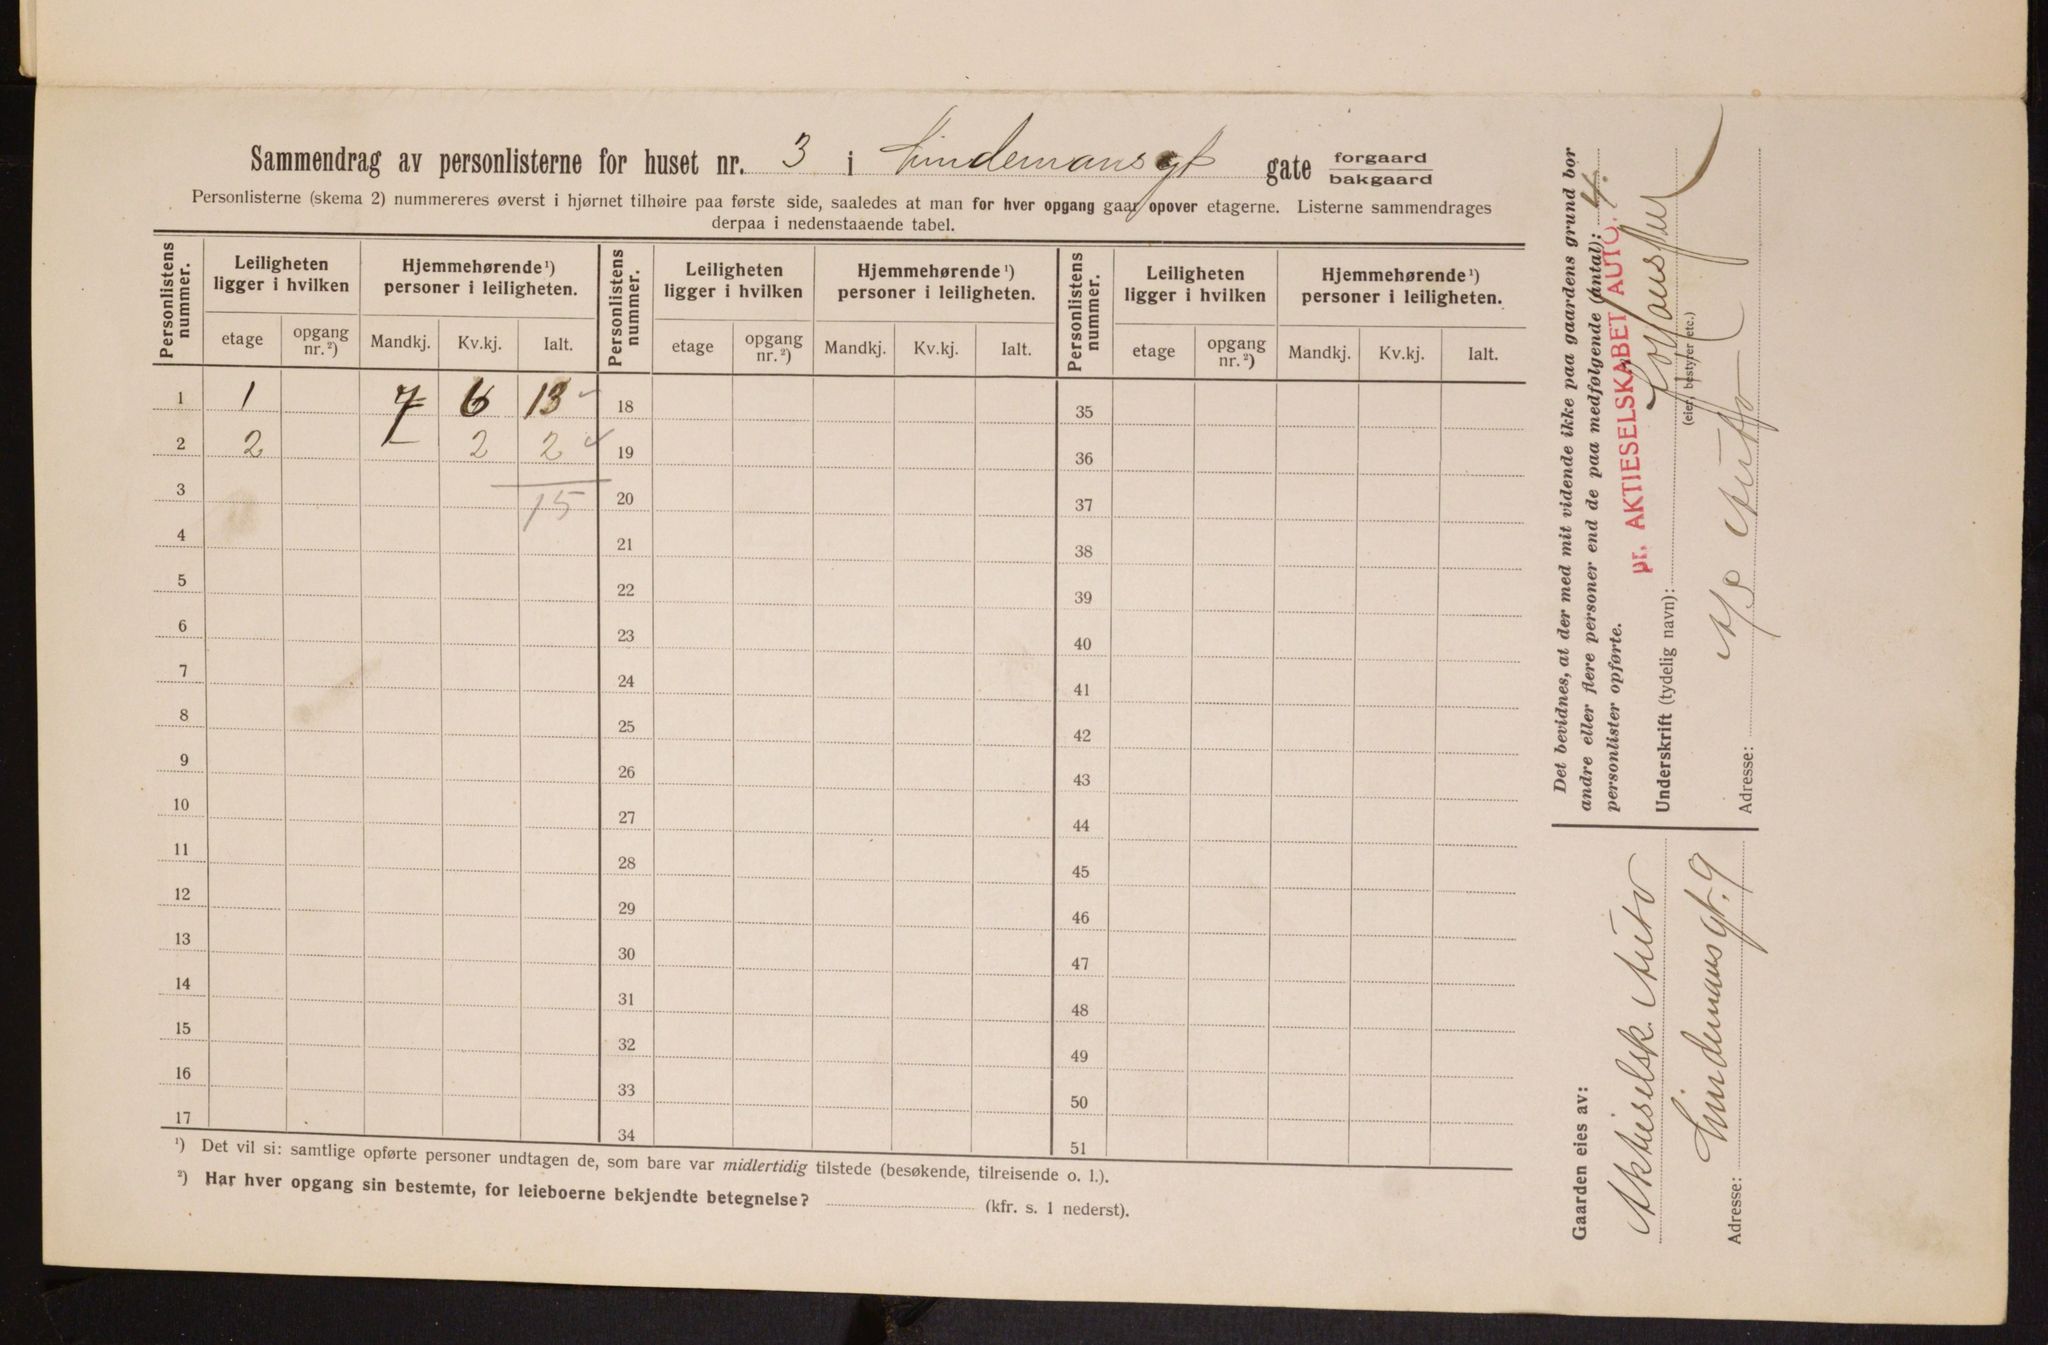 Sammendrag av personlisterne for huset nr. 3 i Lindemansgt gate forgaard
bakgaard
Personlisterne (skema 2) nummereres øverst i hjørnet tilhøire paa første side, saaledes at man for hver opgang gaar opover etagerne. Listerne sammendrages
derpaa i nedenstaaende tabel.
Personlistens nummer. Leiligheten ligger i hvilken Hjemmehørende ¹) personer i leiligheten. Personlistens nummer. Leiligheten ligger i hvilken Hjemmehørende ¹) personer i leiligheten. Personlistens nummer. Leiligheten ligger i hvilken Hjemmehørende ¹) personer i leiligheten.
etage opgang nr. ²) Mandkj. Kv.kj. Ialt. etage opgang nr. ²) Mandkj. Kv.kj. Ialt. etage opgang nr. ²) Mandkj. Kv.kj. Ialt.
1 1 7 6 13 18 35
2 2 – 2 2 19 36
3 15 20 37
4 21 38
5 22 39
6 23 40
7 24 41
8 25 42
9 26 43
10 27 44
11 28 45
12 29 46
13 30 47
14 31 48
15 32 49
16 33 50
17 34 51
¹) Det vil si: samtlige opførte personer undtagen de, som bare var midlertidig tilstede (besøkende, tilreisende o. l.).
²) Har hver opgang sin bestemte, for leieboerne bekjendte betegnelse? (kfr. s. 1 nederst).
Det bevidnes, at der med mit vidende ikke paa gaardens grund bor
andre eller flere personer end de paa medfølgende (antal): 4.
personlister opførte.
pr. AKTIESELSKABET AUTO.
Underskrift (tydelig navn):
(eier, bestyrer etc.)
Adresse: A/S Auto
Gaarden eies av:
Aktieselsk. Auto
Adresse: Lindemansgt. 9